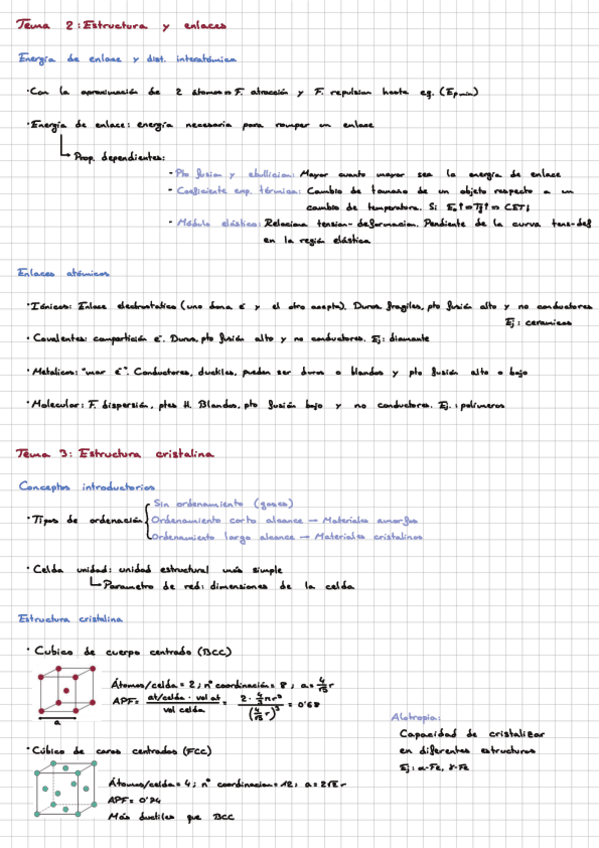 Tema 2: Estructura y enlaces
Energía de enlace y dist. interatómica
· Con la aproximación de 2 átomos ⇒ F. atracción y F. repulsion hasta eq. (Ep min)
· Energía de enlace: energía necesaria para romper un enlace
Prop. dependientes:
- Pto fusion y ebullicion: Mayor cuanto mayor sea la energía de enlace
- Coeficiente exp. térmica: Cambio de tamaño de un objeto respecto a un
cambio de temperatura. Si E₀↑ ⇒ Tf↑ ⇒ CET↓
- Módulo elástico: Relaciona tension-deformacion. Pendiente de la curva tens-def
en la región elástica
Enlaces atómicos
· Iónicos: Enlace electrostatico (uno dona e⁻ y el otro acepta). Duros, fragiles, pto fusión alto y no conductores
Ej: ceramicos
· Covalentes: compartición e⁻. Duros, pto fusión alto y no conductores. Ej: diamante
· Metalicos: "mar e⁻". Conductores, ductiles, pueden ser duros o blandos y pto fusión alto o bajo
· Molecular: F. dispersión, ptes H. Blandos, pto fusión bajo y no conductores. Ej.: polimeros
Tema 3: Estructura cristalina
Conceptos introductorios
· Tipos de ordenación {
Sin ordenamiento (gases)
Ordenamiento corto alcance — Materiales amorfos
Ordenamiento largo alcance — Materiales cristalinos
· Celda unidad: unidad estructural más simple
Parametro de red: dimensiones de la celda
Estructura cristalina
· Cubico de cuerpo centrado (BCC)
Átomos/celda = 2; nº coordinación = 8; a = 4/√3 r
APF = at/celda · vol at / vol celda = 2 · 4/3 π r³ / (4/√3 r)³ = 0'68
a
Alotropia:
Capacidad de cristalizar
en diferentes estructuras
Ej: α-Fe, γ-Fe
· Cúbico de caras centradas (FCC)
Átomos/celda = 4; nº coordinacion = 12; a = 2√2 r
APF = 0'74
Más ductiles que BCC